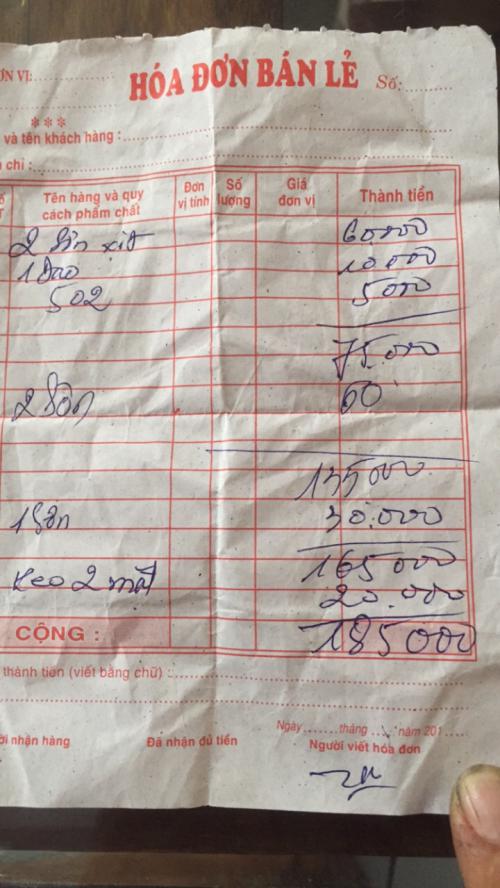 ƠN VỊ:
HÓA ĐƠN BÁN LẺ Số:
***
và tên khách hàng :
chỉ :
Tên hàng và quy cách phẩm chất Đơn vị tính Số lượng Giá đơn vị Thành tiền
2 Sơn xịt 60000
1 Dao 10.000
502 5000
75.000
2 Sơn 60
135000
1 Sơn 30.000
165000
Keo 2 mặt 20.000
CỘNG : 185000
thành tiền (viết bằng chữ) :
Ngày tháng năm 201
ời nhận hàng Đã nhận đủ tiền Người viết hóa đơn